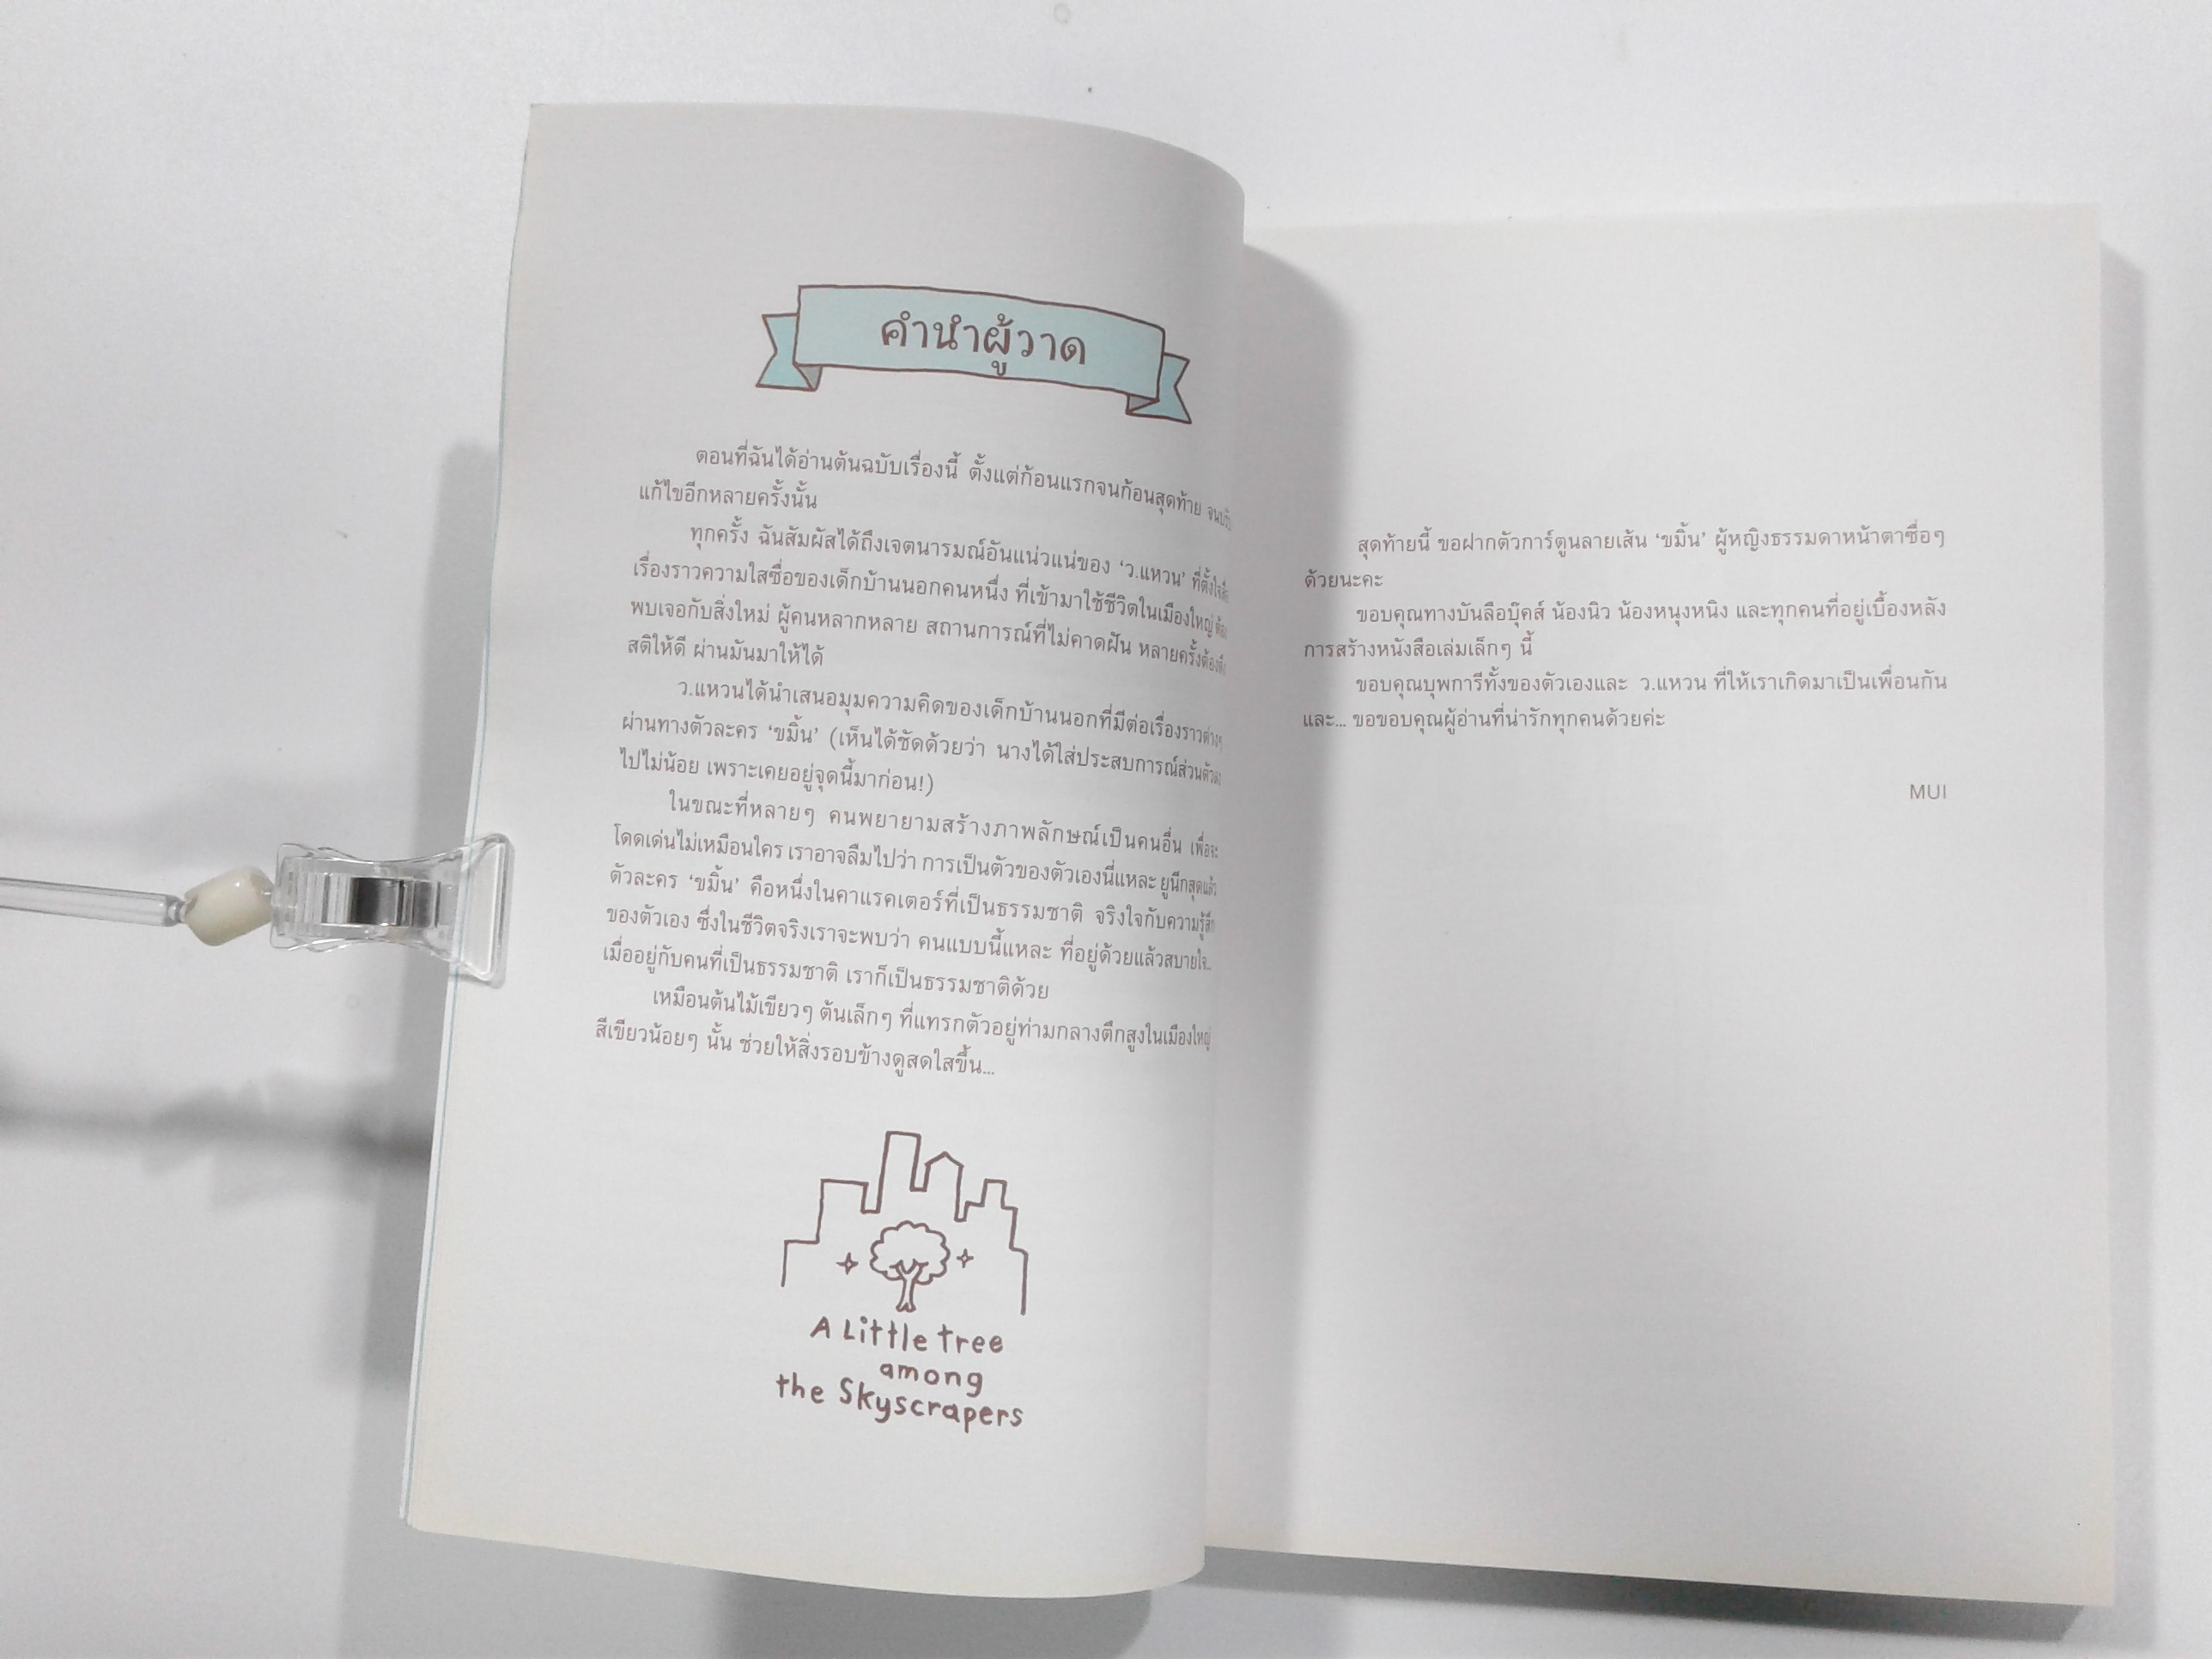 คำนำผู้วาด
ตอนที่ฉันได้อ่านต้นฉบับเรื่องนี้ ตั้งแต่ก้อนแรกจนก้อนสุดท้าย
แก้ไขอีกหลายครั้งนั้น
ทุกครั้ง ฉันสัมผัสได้ถึงเจตนารมณ์อันแน่วแน่ของ ‘ว.แหวน’
เรื่องราวความใสซื่อของเด็กบ้านนอกคนหนึ่ง ที่เข้ามาใช้ชีวิตในเมืองใหญ่
พบเจอกับสิ่งใหม่ ผู้คนหลากหลาย สถานการณ์ที่ไม่คาดฝัน
สติให้ดี ผ่านมันมาให้ได้
ว.แหวนได้นำเสนอมุมความคิดของเด็กบ้านนอกที่มีต่อเรื่องราวต่างๆ
ผ่านทางตัวละคร ‘ขมิ้น’ (เห็นได้ชัดด้วยว่า นางได้ใส่ประสบการณ์ส่วนตัว
ไปไม่น้อย เพราะเคยอยู่จุดนี้มาก่อน!)
ในขณะที่หลายๆ คนพยายามสร้างภาพลักษณ์เป็นคนอื่น เพื่อจะ
โดดเด่นไม่เหมือนใคร เราอาจลืมไปว่า การเป็นตัวของตัวเองนี่แหละ ยูนีกสุดแล้ว
ตัวละคร ‘ขมิ้น’ คือหนึ่งในคาแรคเตอร์ที่เป็นธรรมชาติ จริงใจกับความรู้สึก
ของตัวเอง ซึ่งในชีวิตจริงเราจะพบว่า คนแบบนี้แหละ ที่อยู่ด้วยแล้วสบายใจ...
เมื่ออยู่กับคนที่เป็นธรรมชาติ เราก็เป็นธรรมชาติด้วย
เหมือนต้นไม้เขียวๆ ต้นเล็กๆ ที่แทรกตัวอยู่ท่ามกลางตึกสูงในเมืองใหญ่
สีเขียวน้อยๆ นั้น ช่วยให้สิ่งรอบข้างดูสดใสขึ้น...
A Little tree
among
the Skyscrapers
สุดท้ายนี้ ขอฝากตัวการ์ตูนลายเส้น ‘ขมิ้น’ ผู้หญิงธรรมดาหน้าตาซื่อๆ
ด้วยนะคะ
ขอบคุณทางบันลือบุ๊คส์ น้องนิว น้องหนุงหนิง และทุกคนที่อยู่เบื้องหลัง
การสร้างหนังสือเล่มเล็กๆ นี้
ขอบคุณบุพการีทั้งของตัวเองและ ว.แหวน ที่ให้เราเกิดมาเป็นเพื่อนกัน
และ... ขอขอบคุณผู้อ่านที่น่ารักทุกคนด้วยค่ะ
MUI